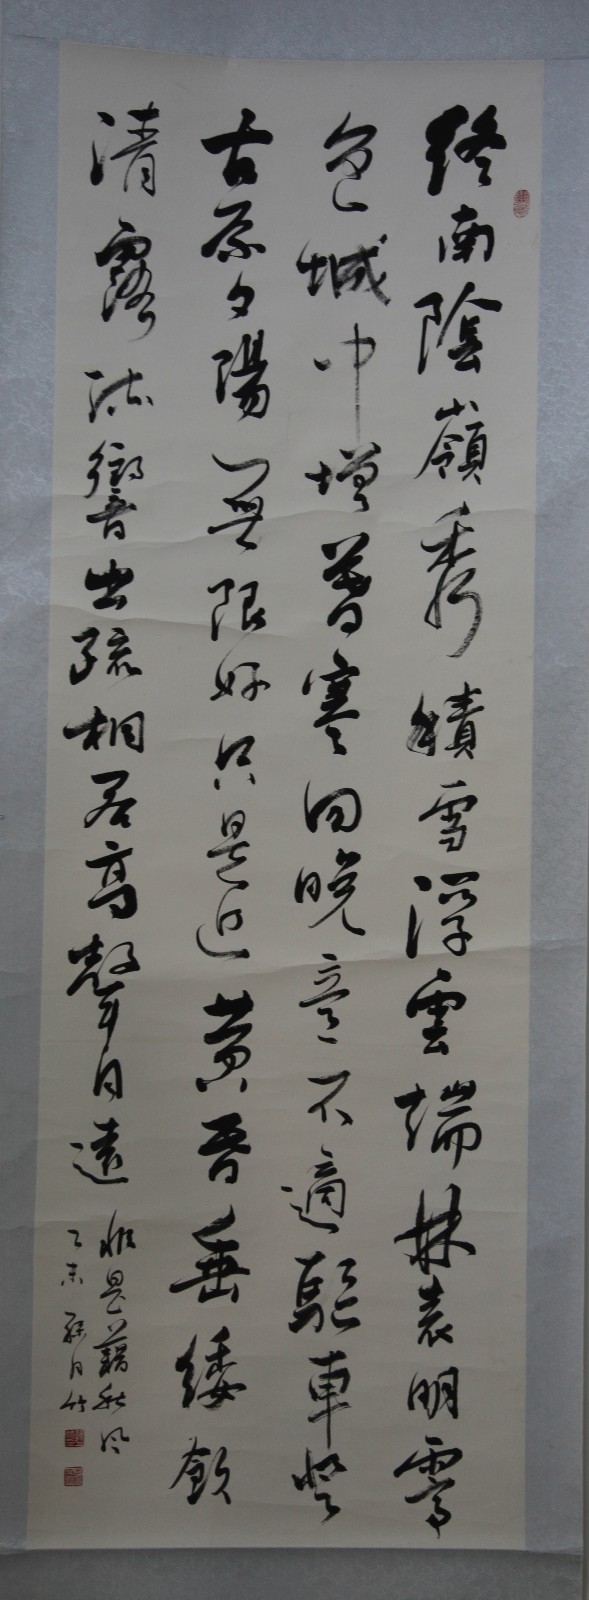 終南陰嶺秀積雪浮雲端林表明霽
色城中增暮寒向晚意不適驅車登
古原夕陽無限好只是近黃昏垂緌飲
清露流響出疏桐居高聲自遠
非是藉秋風
乙未 月竹